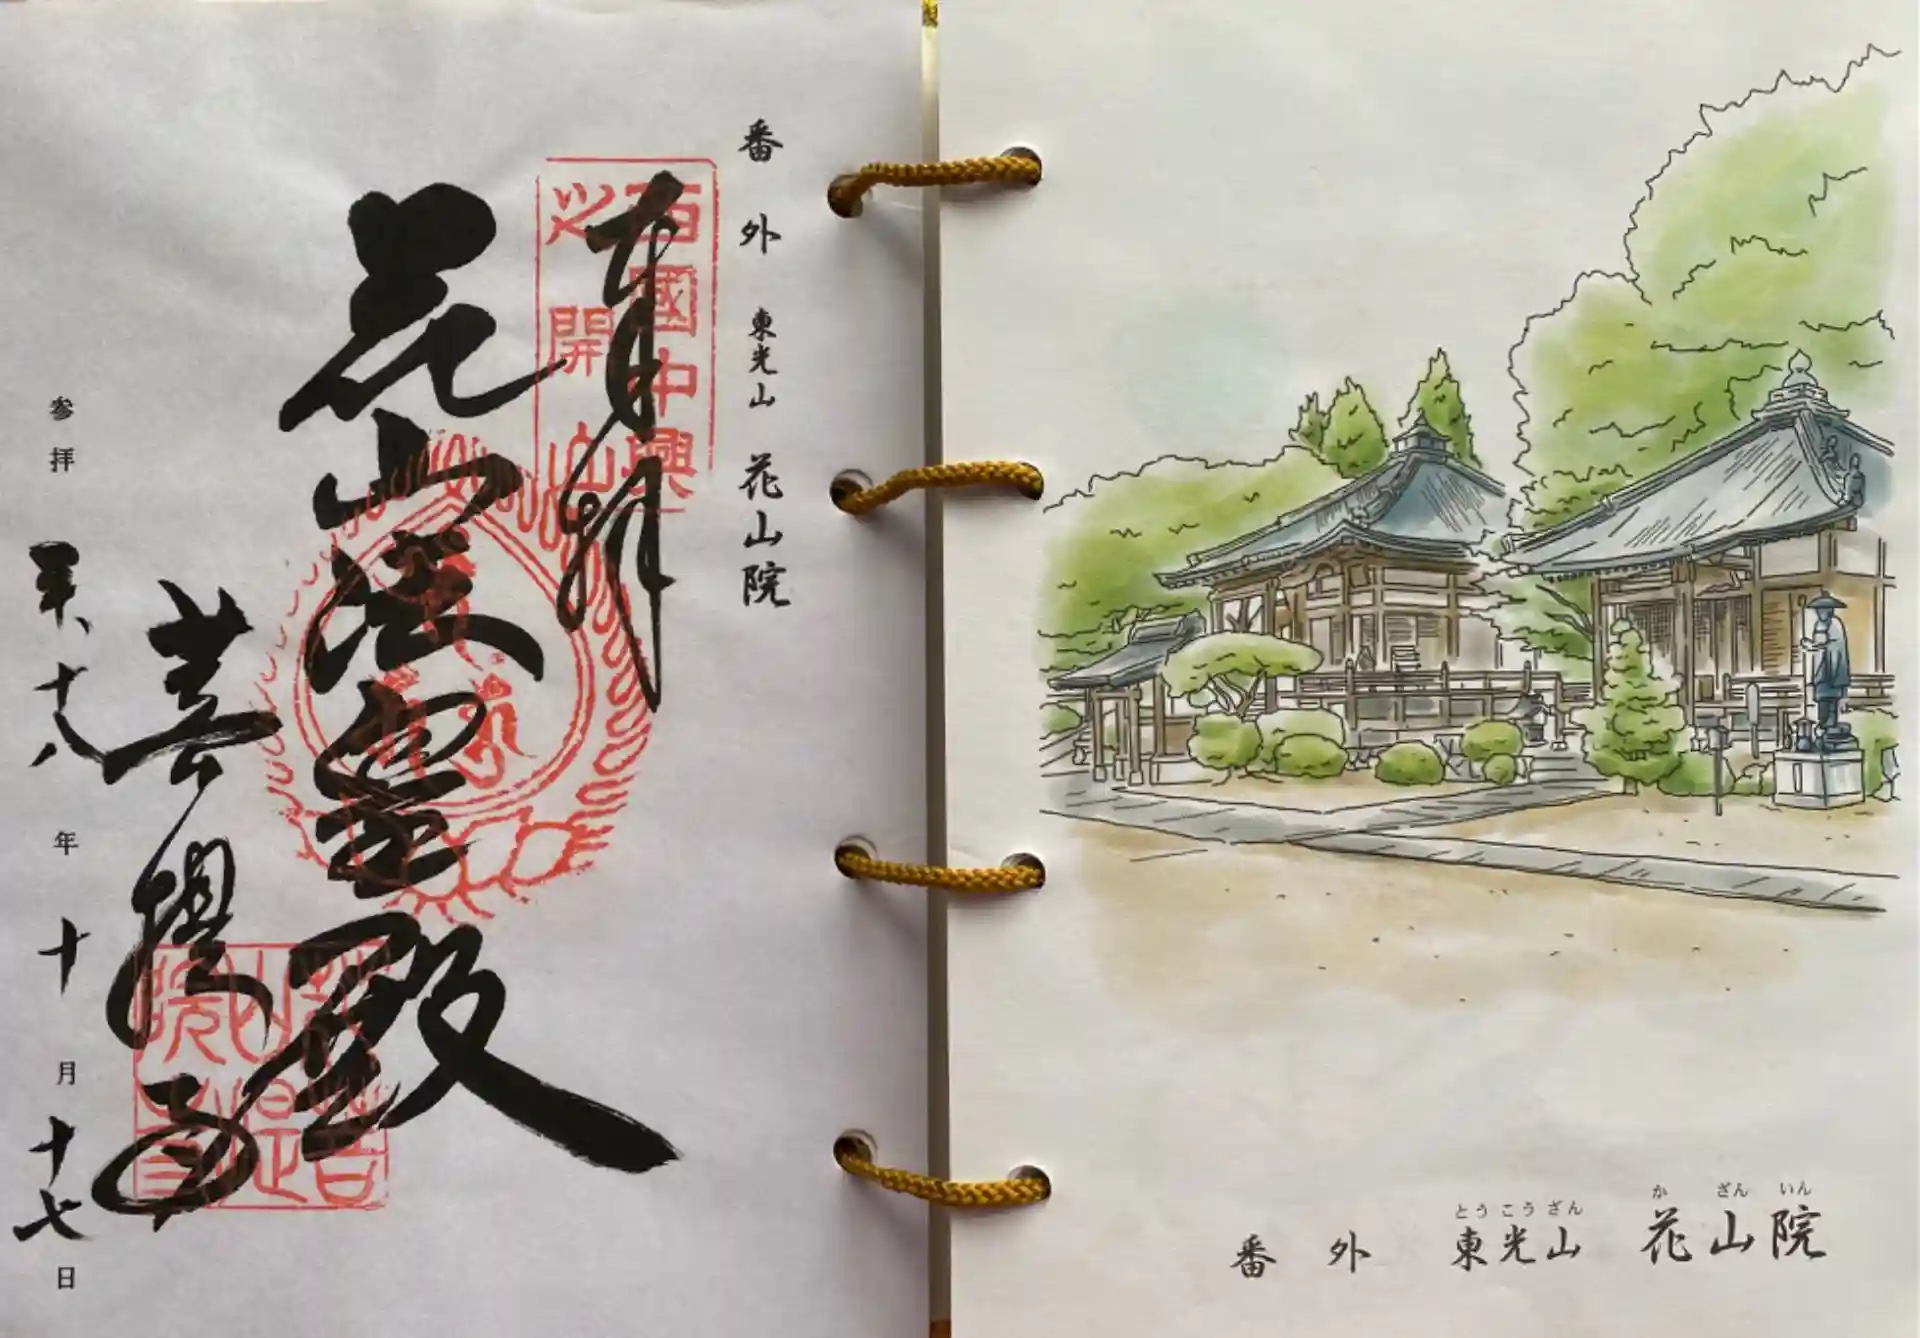 番外 東光山 花山院
奉拝
西國中興
之開山
花山法皇殿
菩提寺
花山院
菩提寺
参拝 平、十八年十月十七日
とうこうざん かざんいん
番外 東光山 花山院